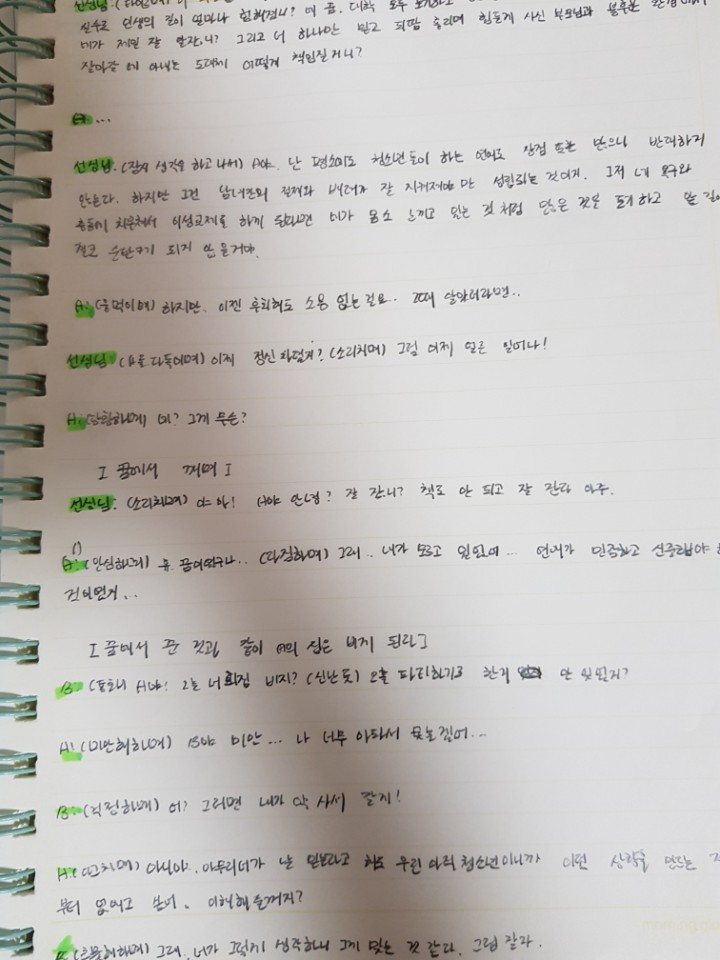 실수로 인생의 길이 얼마나 험해졌니? 네 꿈, 대학 모두 포기하고
네가 제일 잘 알잖니? 그리고 너 하나만 믿고 피땀 흘리며 힘들게 사신 부모님과 불투명
장마감 에 아니는 도대체 어떻게 책임질거니?
A: ...
선생님: (잠시 생각을 하고나서) A야. 난 평소에도 청소년들이 하는 연애도 장점 또한 많으니 반대하지
않는다. 하지만 그건 남녀간의 절제와 배려가 잘 지켜져야만 성립되는 것이지. 그저 네 욕구와
충동에 치우쳐서 이성교제를 하게 된다면 네가 몸소 느끼고 있는 것처럼 많은 것을 포기하고 앞 길이
결코 순탄하게 되지 않을거야.
A: (울먹이며) 하지만. 이젠 후회해도 소용 없는걸요. 그때 알았더라면..
선생님: (A를 다독이며) 이제 정신 차렸지? (소리치며) 그럼 이제 얼른 일어나!
A: (당황하며) 네? 그게 무슨?
[꿈에서 깨며]
선생님: (소리치며) 야 야! A야 안녕? 잘 잤니? 책도 안 펴고 잘 잔다 아주.
A: (안심하며) 휴. 꿈이었구나.. (다짐하며) 그래.. 내가 모르고 있었네... 연애가 신중하고 신중해야
것이였어...
[꿈에서 꾼 것과 같이 A의 집은 비게 된다]
B: A야! 오늘 너희집 비지? (신난듯) 오늘 파티하기로 한거 안 잊었지?
A: (미안해하며) B야 미안... 나 너무 아파서 못놀겠어...
B: (걱정하며) 어? 그러면 내가 약 사서 갈게!
A: 아니야. 아무리 너가 나를 믿는다고 해도 우린 아직 청소년이니까 이런 상황을 만드는 것
부터 없애고 싶어. 이해해 줄꺼지?
B: 그래. 너가 그렇게 생각하니 그게 맞는 것 같다. 그럼 갈다.